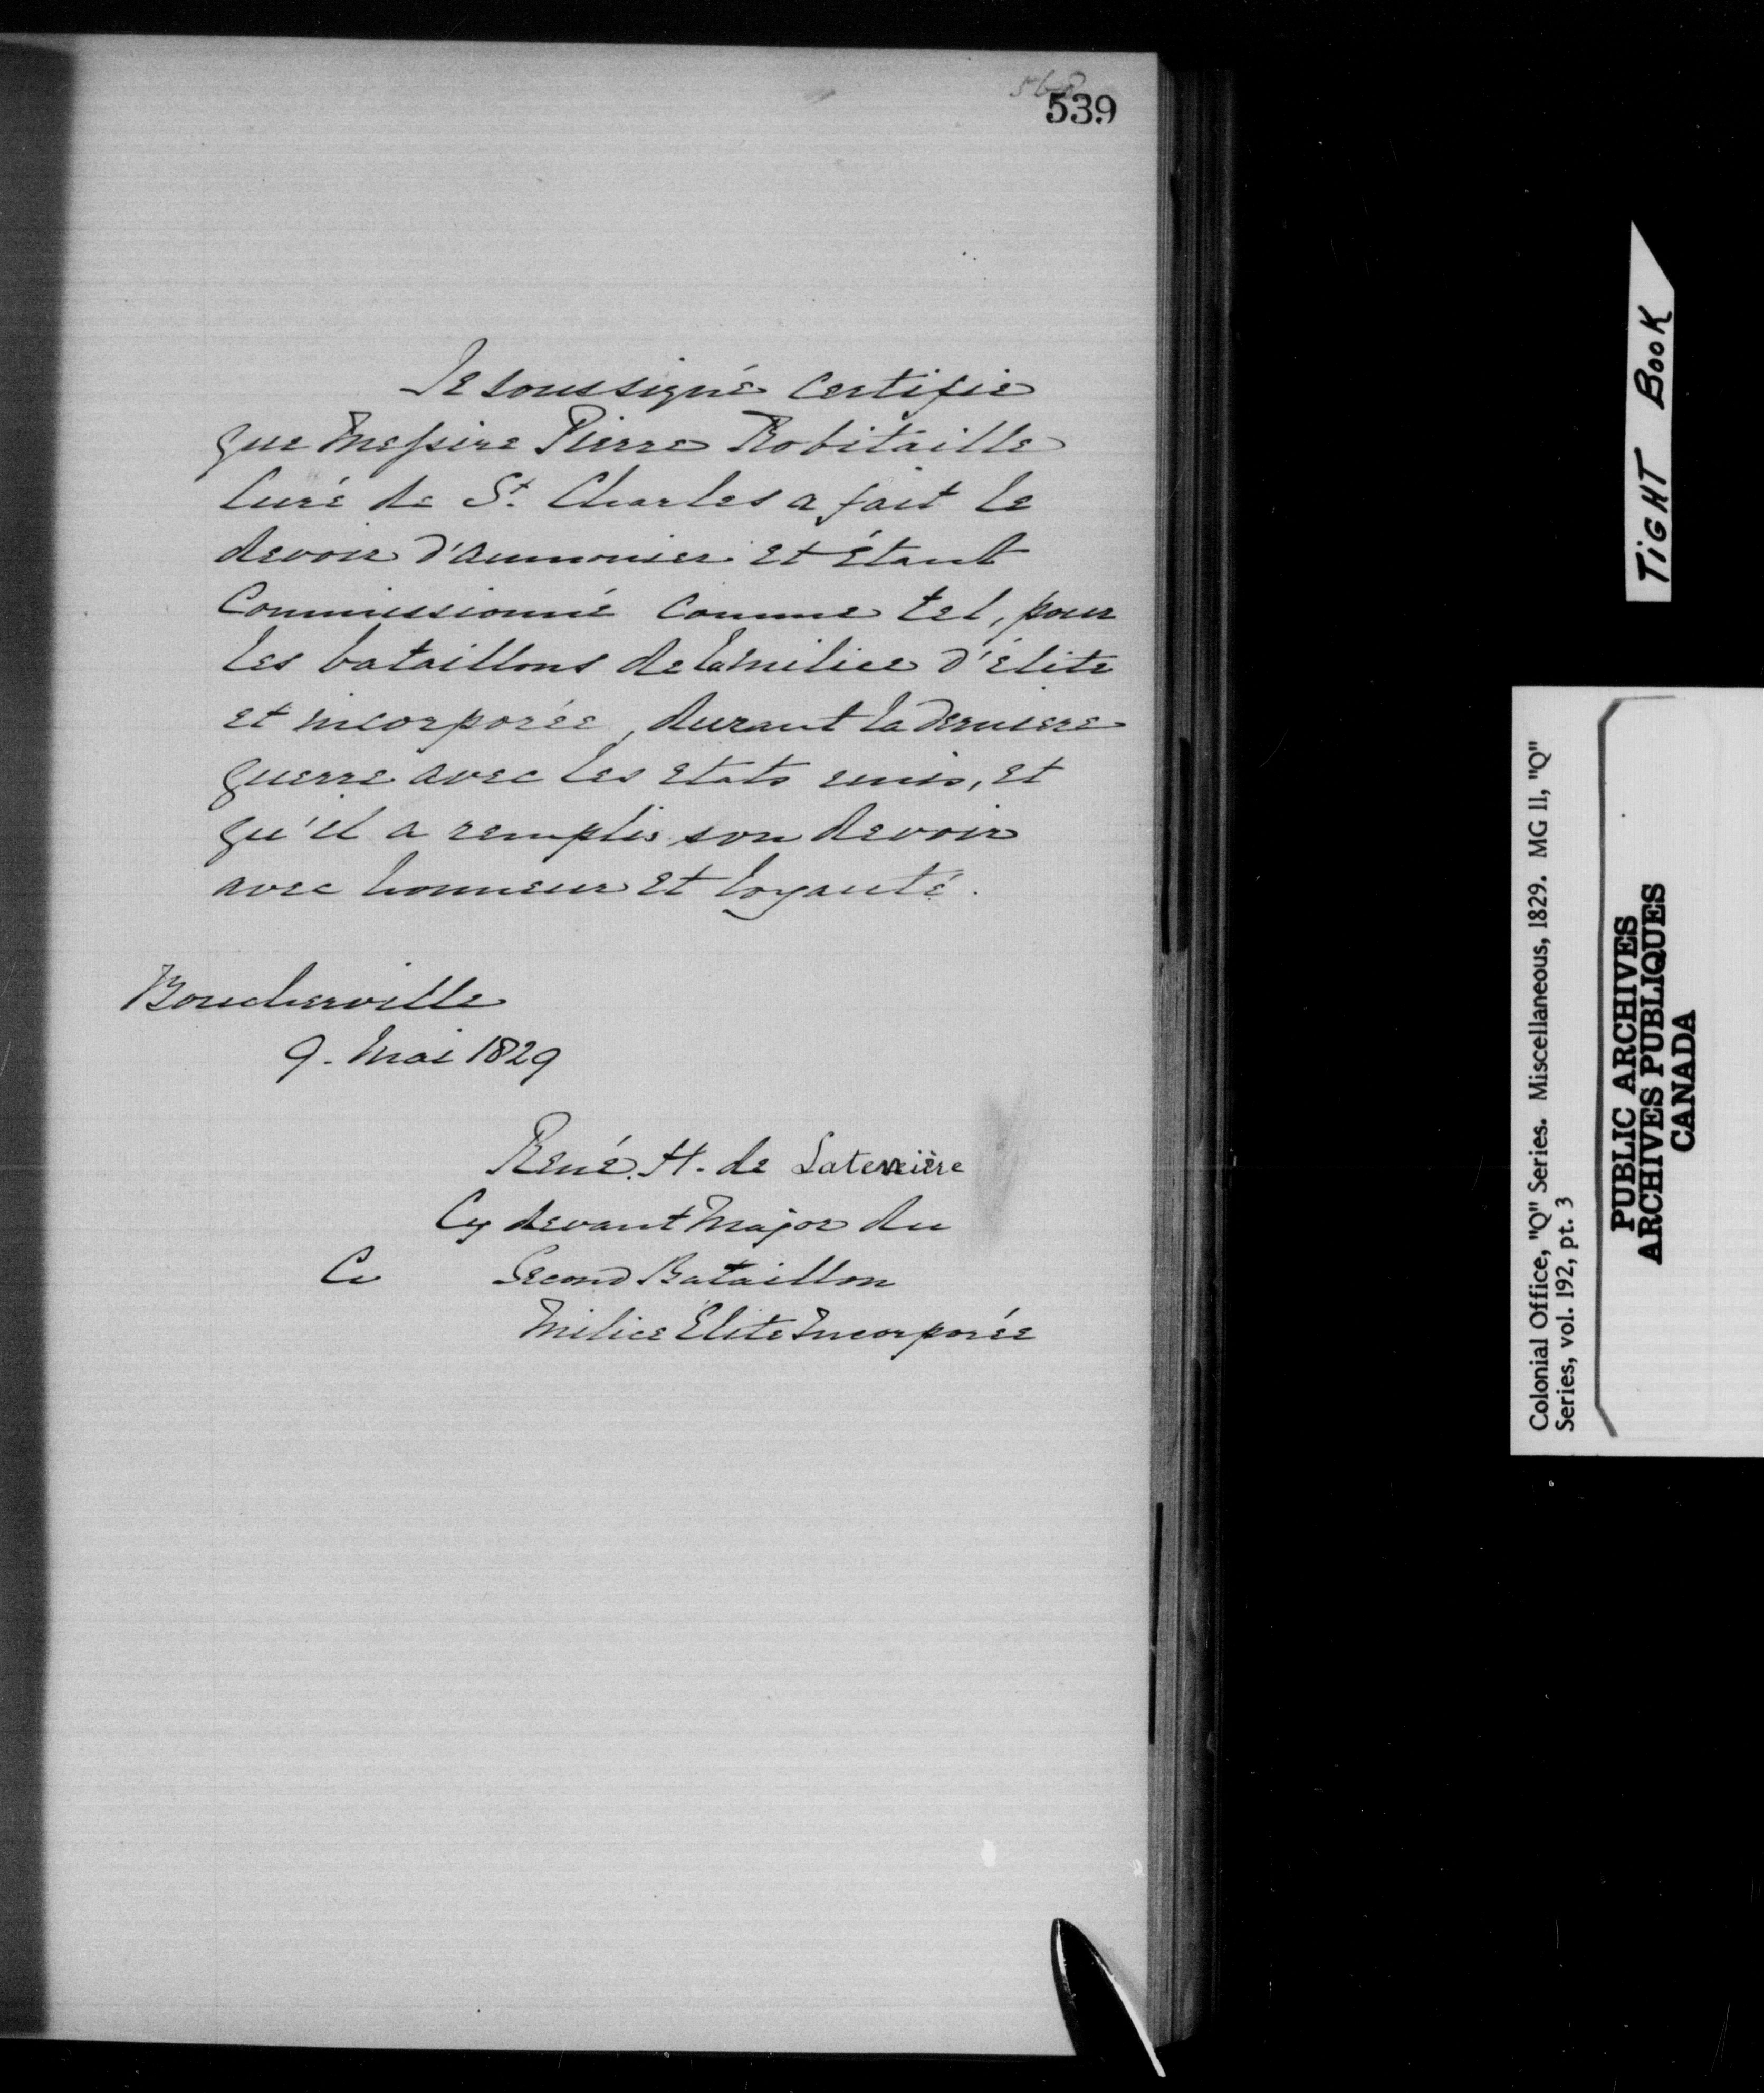 568
539
Je soussigné certifie
que Messire Pierre Robitaille
Curé de St. Charles a fait le
devoir d'aumonier et étant
Commissionné comme tel, pour
les bataillons de la milice d'élite
et incorporée, durant la derniere
guerre avec les etats unis, et
qu'il a remplis son devoir
avec honneur et loyauté.
Boucherville
9. Mai 1829
René. H. de Laterrière
Cy devant Major du
Second Bataillon
Milice Elite Incorporée
TIGHT BOOK
Colonial Office, "Q" Series. Miscellaneous, 1829. MG 11, "Q"
Series, vol. 192, pt. 3
PUBLIC ARCHIVES
ARCHIVES PUBLIQUES
CANADA